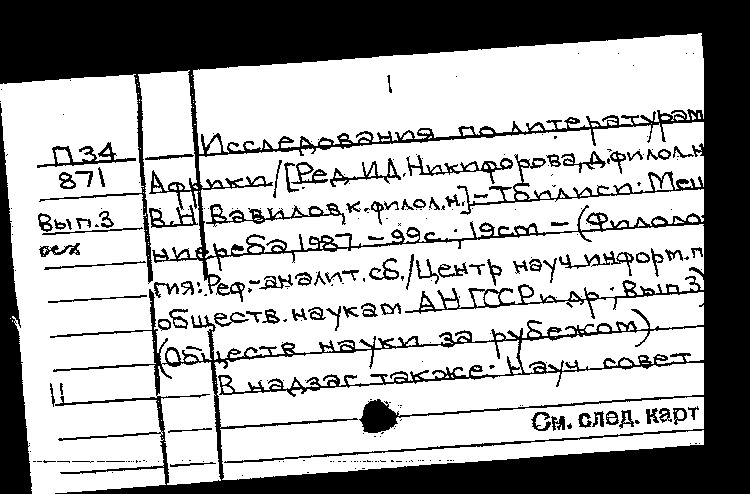 1
П34 Исследования по литературам
871 Африки/[Ред. И.Д.Никифорова,д.филол.н
Вып.3 В.Н Вавилов,к.филол.н.]-Тбилиси: Мец
ниереба,1987.-99с.; 19см.-(Филоло-
гия: Реф.-аналит.сб./Центр науч.информ.п
обществ.наукам АН ГССР и др.; Вып 3)
(Обществ науки за рубежом).
11 В надзаг также: Науч. совет
См. след. карт